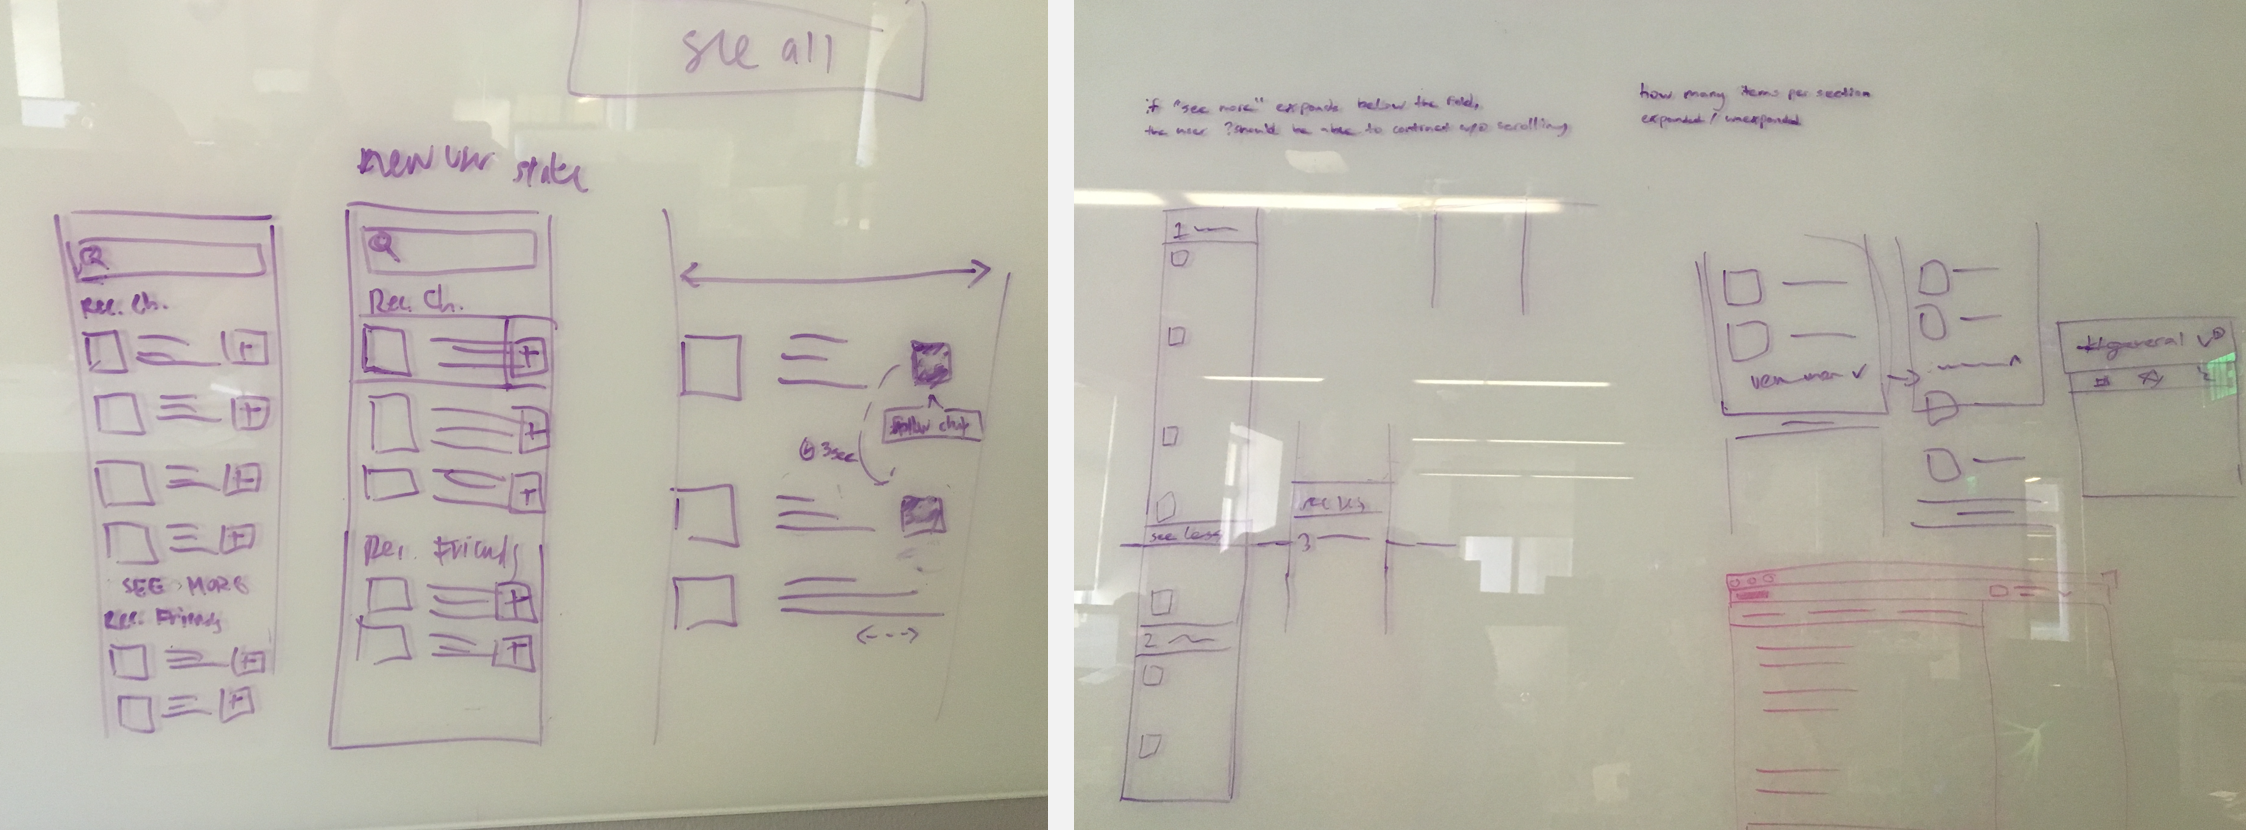 see all
new user state
Rec. Ch.
SEE MORE
Rec. Friends
Rec. Ch.
Rec. Friends
3sec
follow chat
if "see more" expands below the fold,
the user ?should be able to contract w/o scrolling
how many items per section
expanded / unexpanded
1
see less
2
3
#general